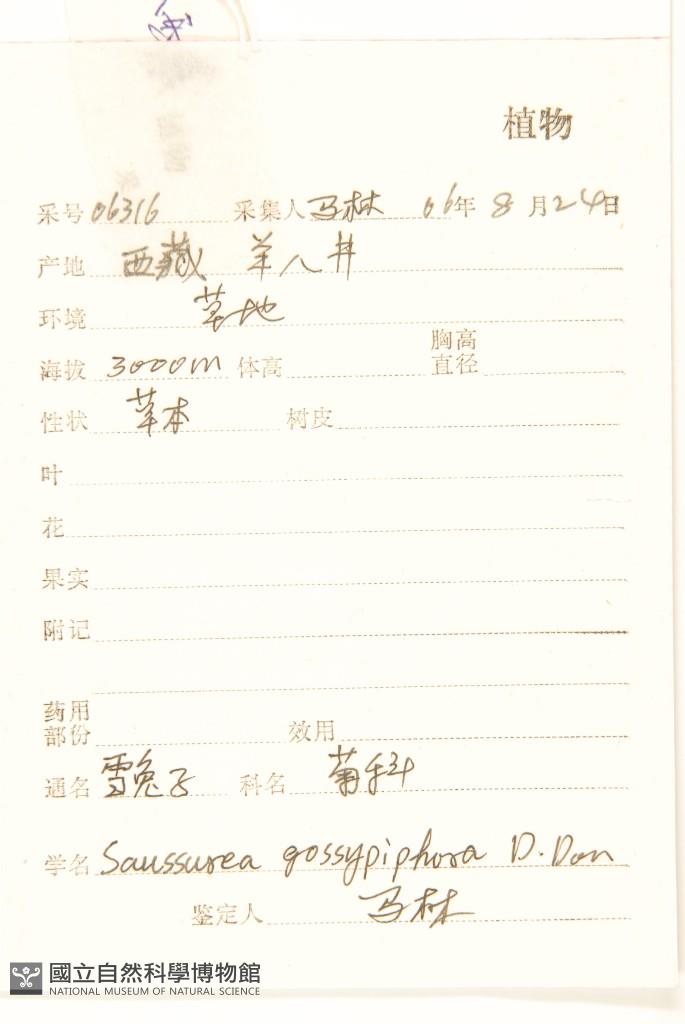 植物
采号 06316 采集人 马林 06年 8月24日
产地 西藏 羊八井
环境 草地
海拔 3000m 体高 胸高直径
性状 草本 树皮
叶
花
果实
附记
药用部份 效用
通名 雪兔子 科名 菊科
学名 Saussurea gossypiphora D.Don
鉴定人 马林
國立自然科學博物館
NATIONAL MUSEUM OF NATURAL SCIENCE